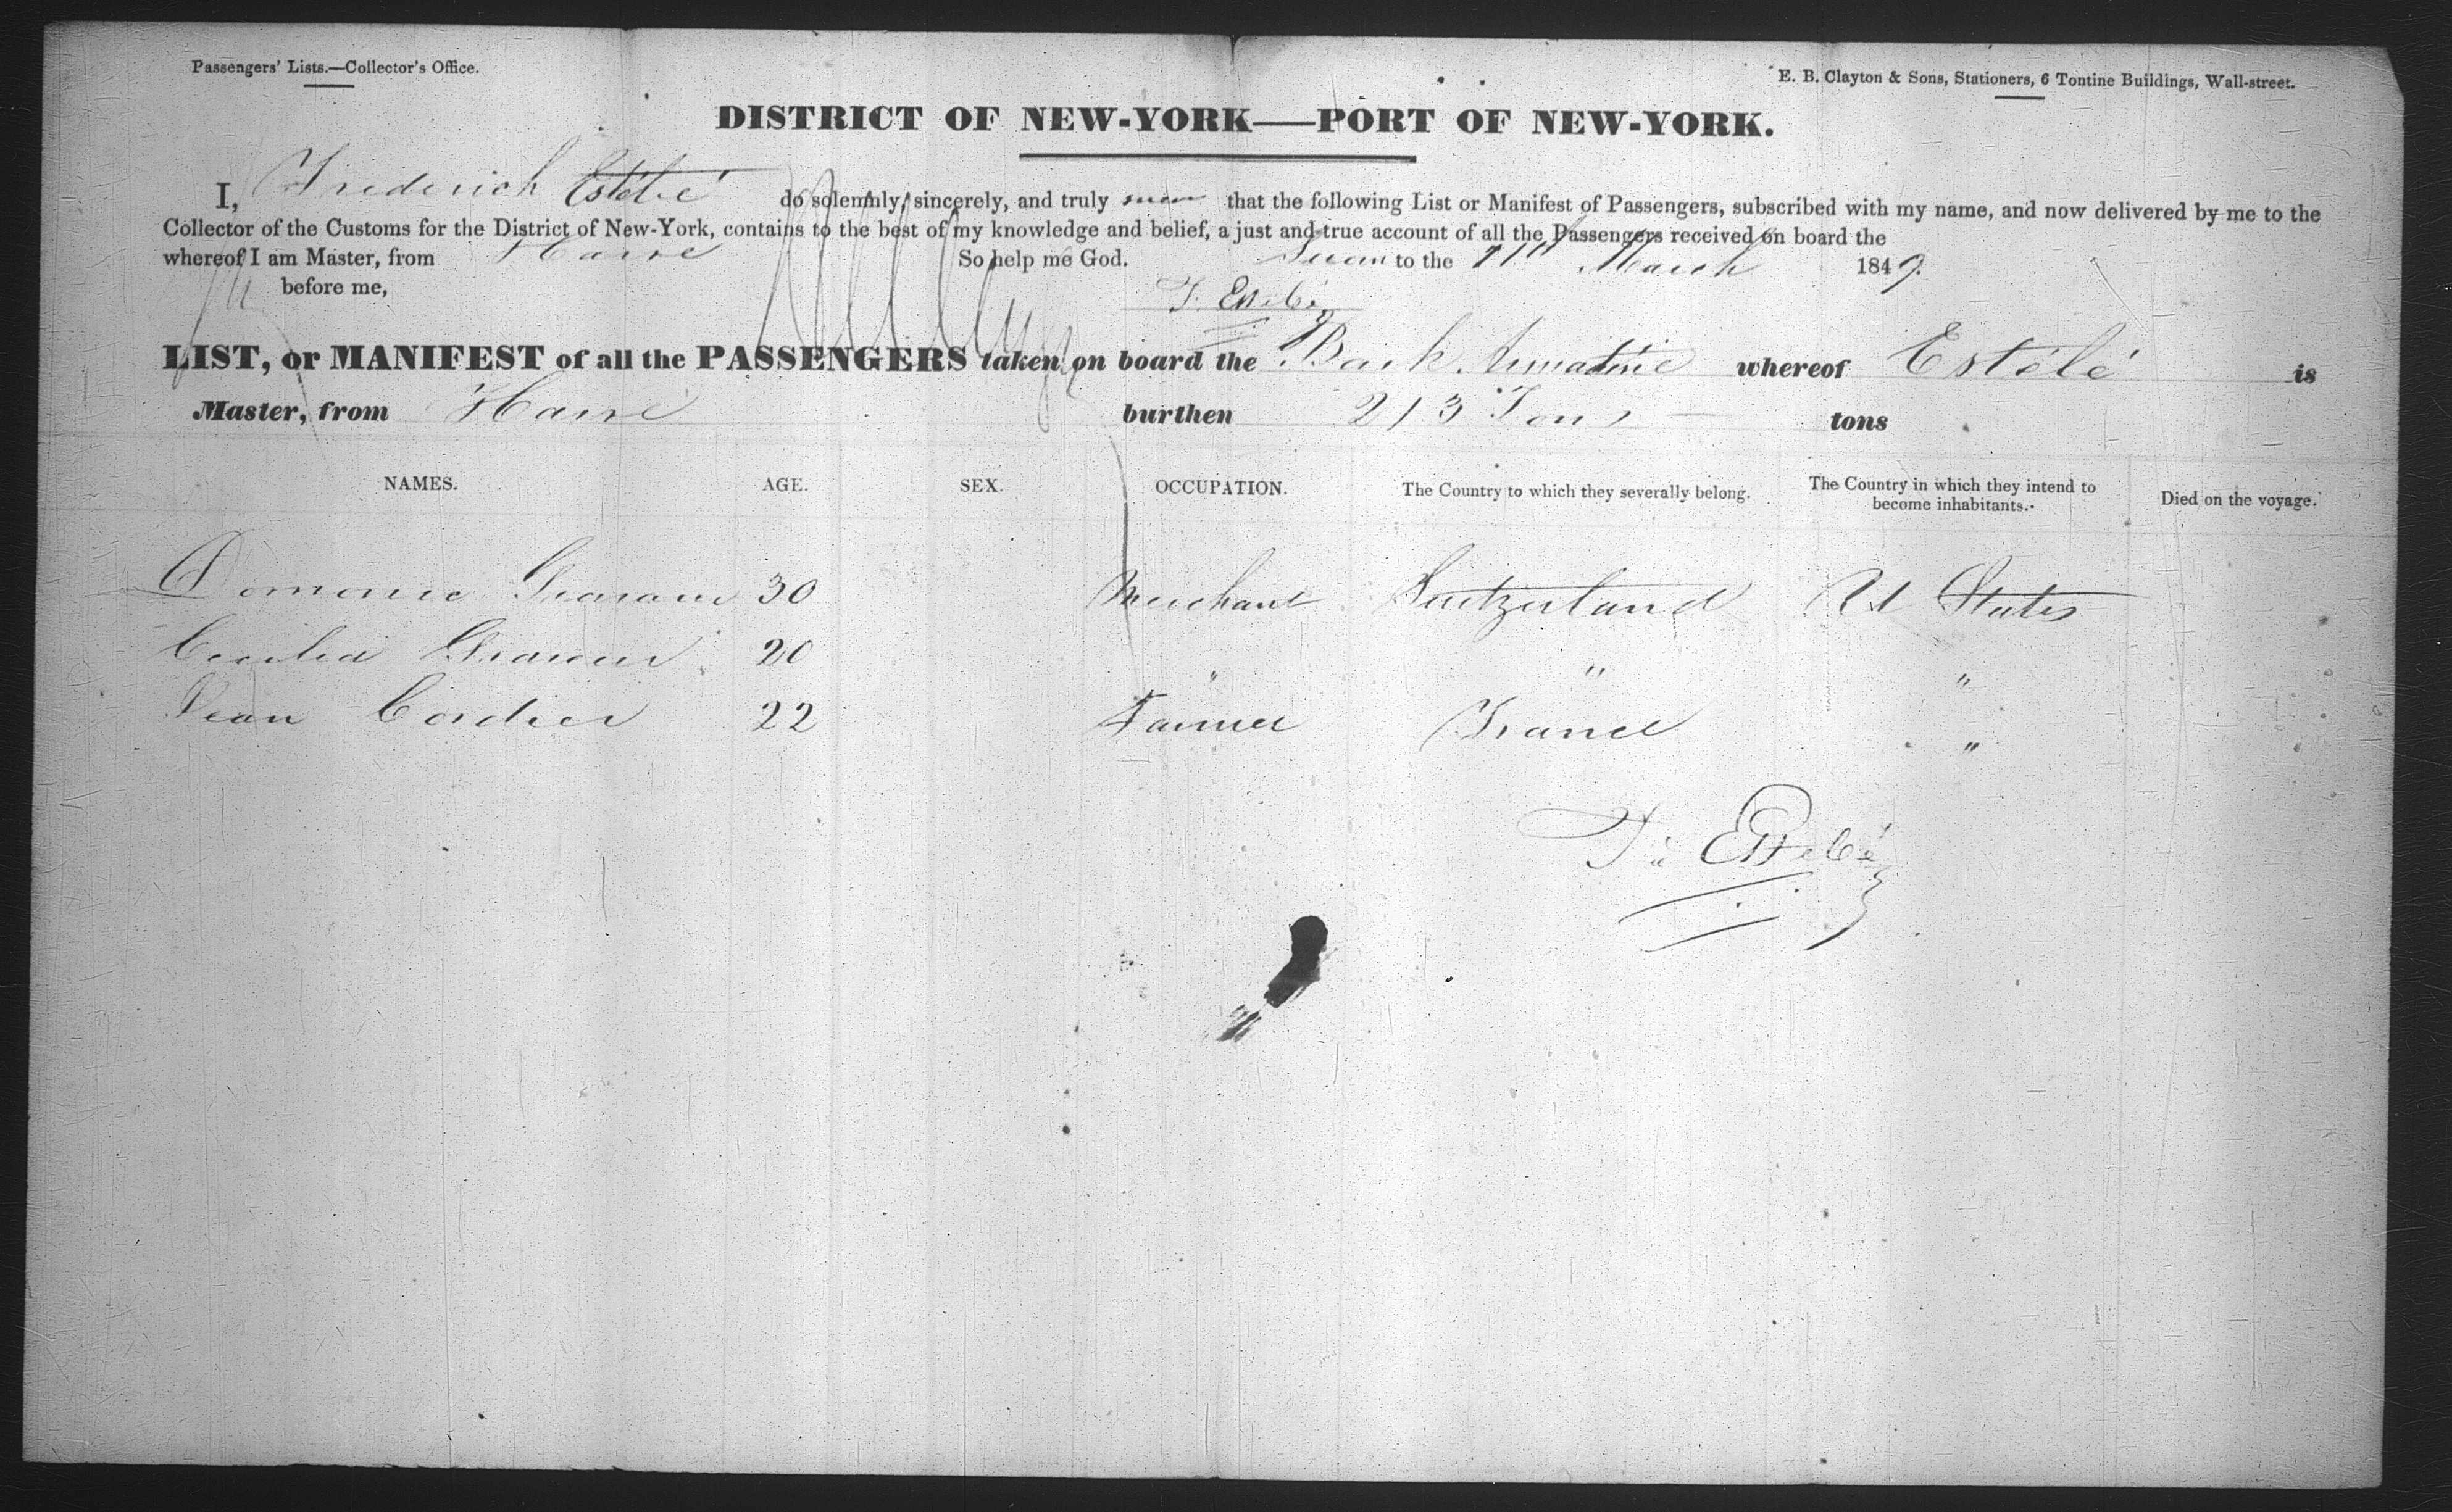 Passengers' Lists.—Collector's Office.
E. B. Clayton & Sons, Stationers, 6 Tontine Buildings, Wall-street.
DISTRICT OF NEW-YORK—PORT OF NEW-YORK.
I, Frederich Estebé do solemnly, sincerely, and truly swear that the following List or Manifest of Passengers, subscribed with my name, and now delivered by me to the
Collector of the Customs for the District of New-York, contains to the best of my knowledge and belief, a just and true account of all the Passengers received on board the
whereof I am Master, from Havre So help me God. Sworn to the March 1849.
before me, F. Estebé
LIST, or MANIFEST of all the PASSENGERS taken on board the Bark whereof Estélé is
Master, from Havre burthen 213 Tons tons
NAMES. AGE. SEX. OCCUPATION. The Country to which they severally belong. The Country in which they intend to become inhabitants. Died on the voyage.
30 Merchant Switzerland Ud States
Cecilia 20 " " "
Jean Cordier 22 Farmer France "
F. Estebé